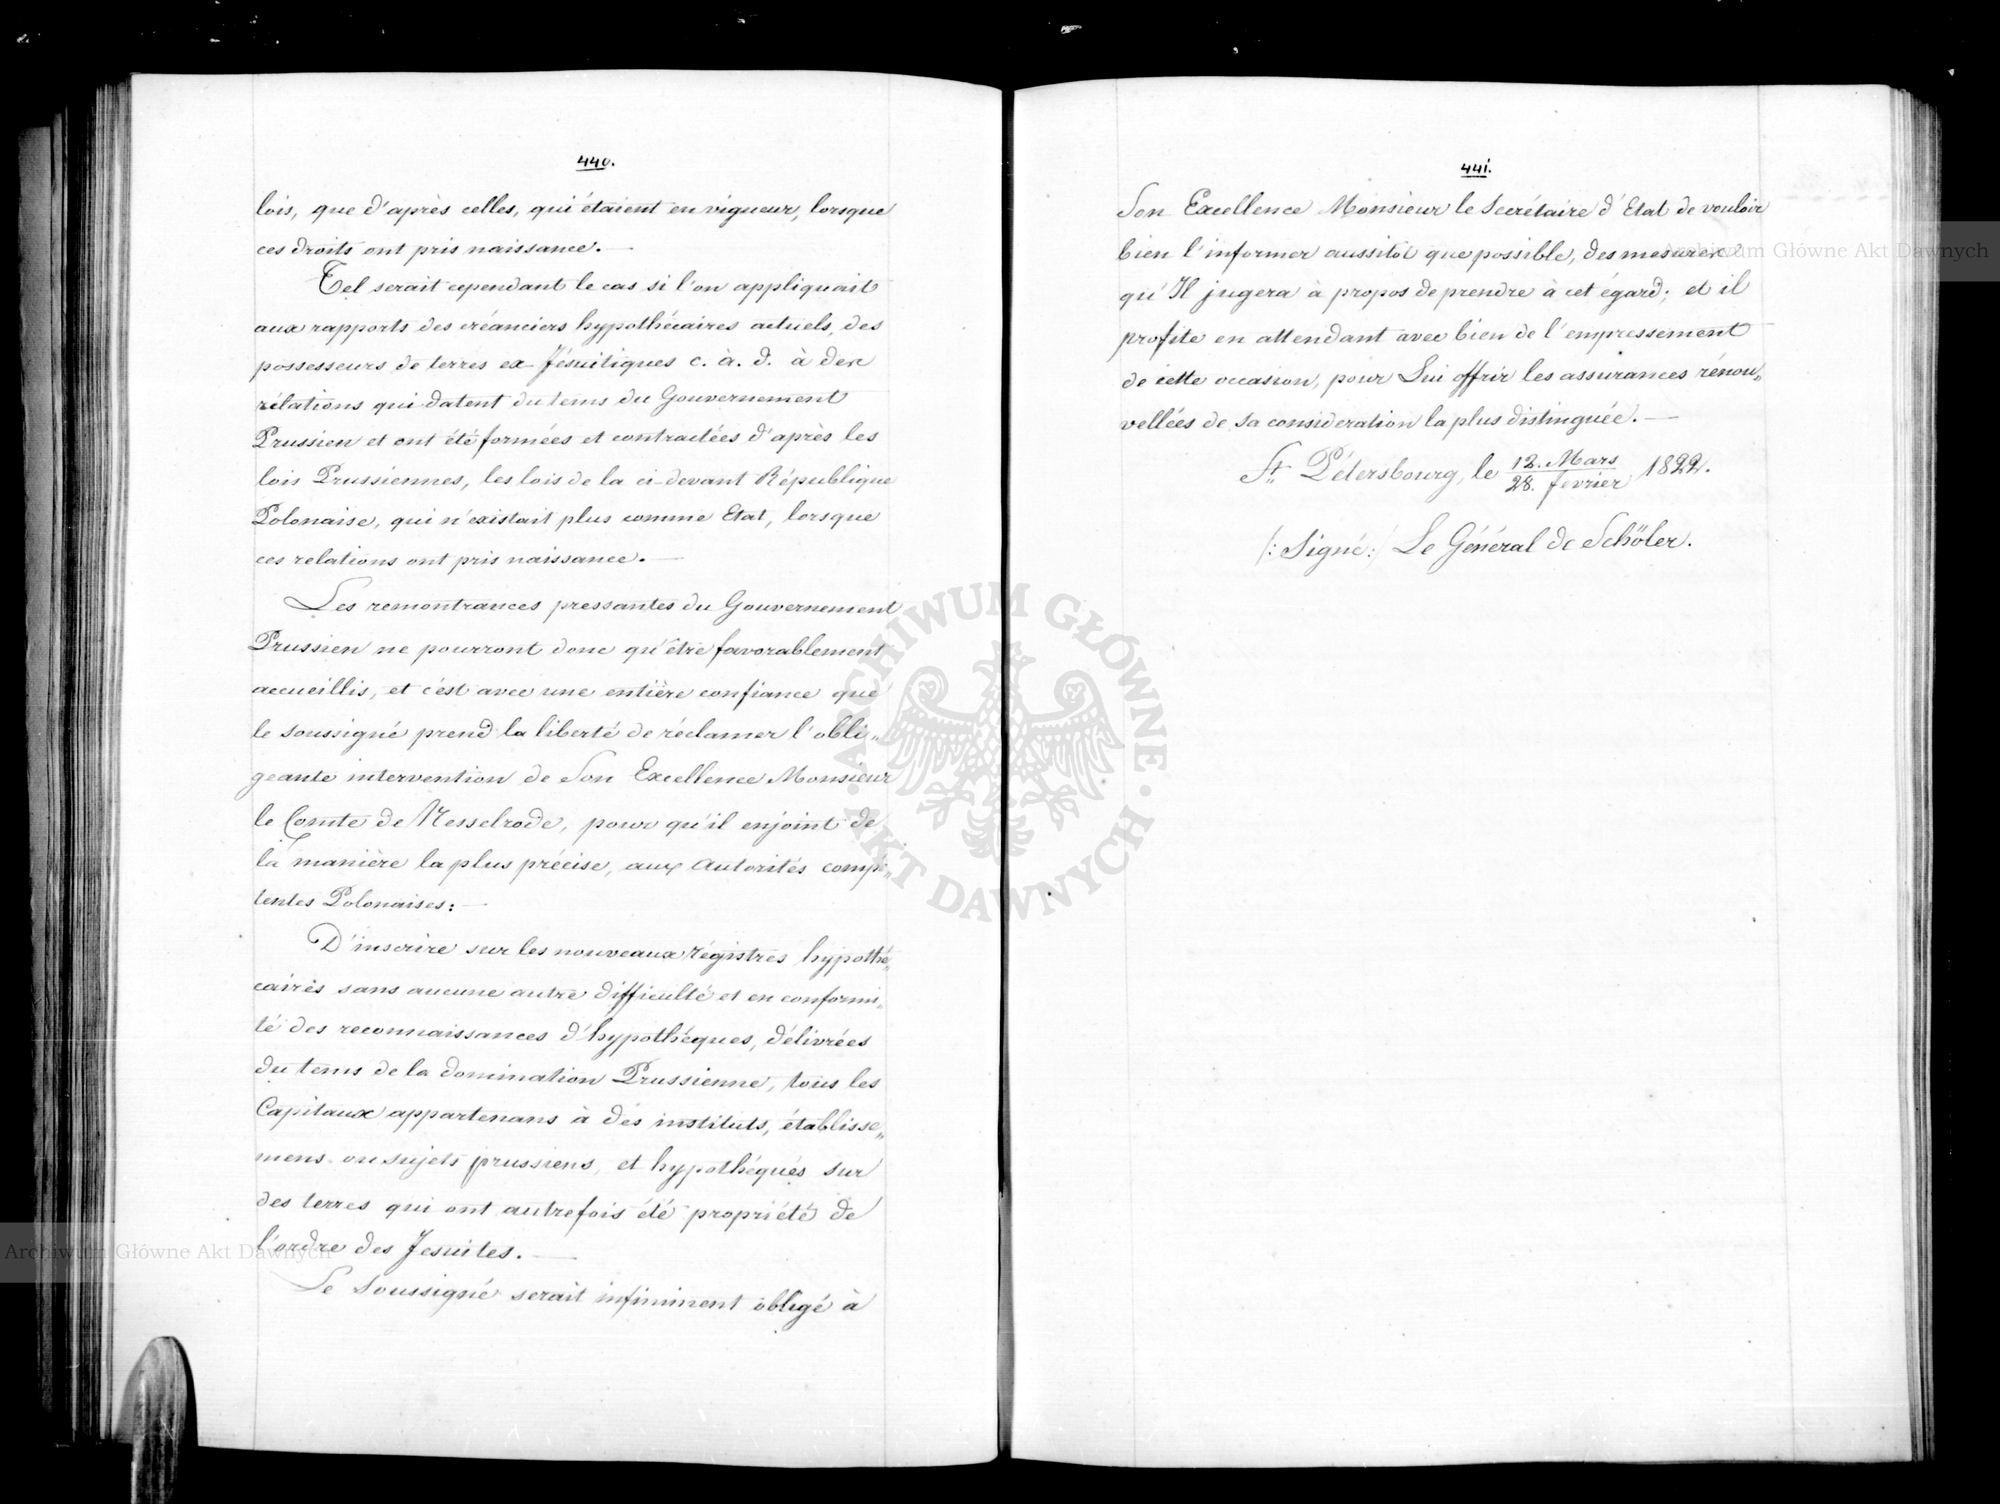 440.
lois, que d'après celles, qui étaient en vigueur, lorsque
ces droits ont pris naissance. —
Tel serait cependant le cas si l'on appliquait
aux rapports des créanciers hypothécaires actuels, des
possesseurs de terres ex-Jésuitiques c. à. d. à des
rélations qui datent du tems du Gouvernement
Prussien et ont été formées et contractées d'après les
lois Prussiennes, les lois de la ci-devant République
Polonaise, qui n'existait plus comme Etat, lorsque
ces relations ont pris naissance. —
Les remontrances pressantes du Gouvernement
Prussien ne pourront donc qu'être favorablement
accueillis, et c'est avec une entière confiance que
le soussigné prend la liberté de réclamer l'obli„
geante intervention de Son Excellence Monsieur
le Comte de Nesselrode, pour qu'il enjoint de
la manière la plus précise, aux Autorités compé„
tentes Polonaises: —
D'inscrire sur les nouveaux régistres hypothé„
cairès sans aucune autre difficulté et en conformi„
té des reconnaissances d'hypothéques, délivrées
du tems de la domination Prussienne, tous les
Capitaux appartenans à des instituts, établisse„
mens ou sujets prussiens, et hypothéqués sur
des terres qui ont autrefois été propriété de
l'ordre des Jesuites. —
Le Soussigné serait infiniment obligé à
441.
Son Excellence Monsieur le Secrétaire d'Etat de vouloir
bien l'informer aussitôt que possible, des mesures
qu'Il jugera à propos de prendre à cet égard; et il
profite en attendant avec bien de l'empressement
de cette occasion, pour Lui offrir les assurances rénou„
vellées de sa consideration la plus distinguée. —
St. Pétersbourg, le 12. Mars / 28. fevrier 1822.
/: Signé :/ Le Général de Schöler.
ARCHIWUM GŁÓWNE
AKT DAWNYCH
Archiwum Główne Akt Dawnych
Archiwum Główne Akt Dawnych